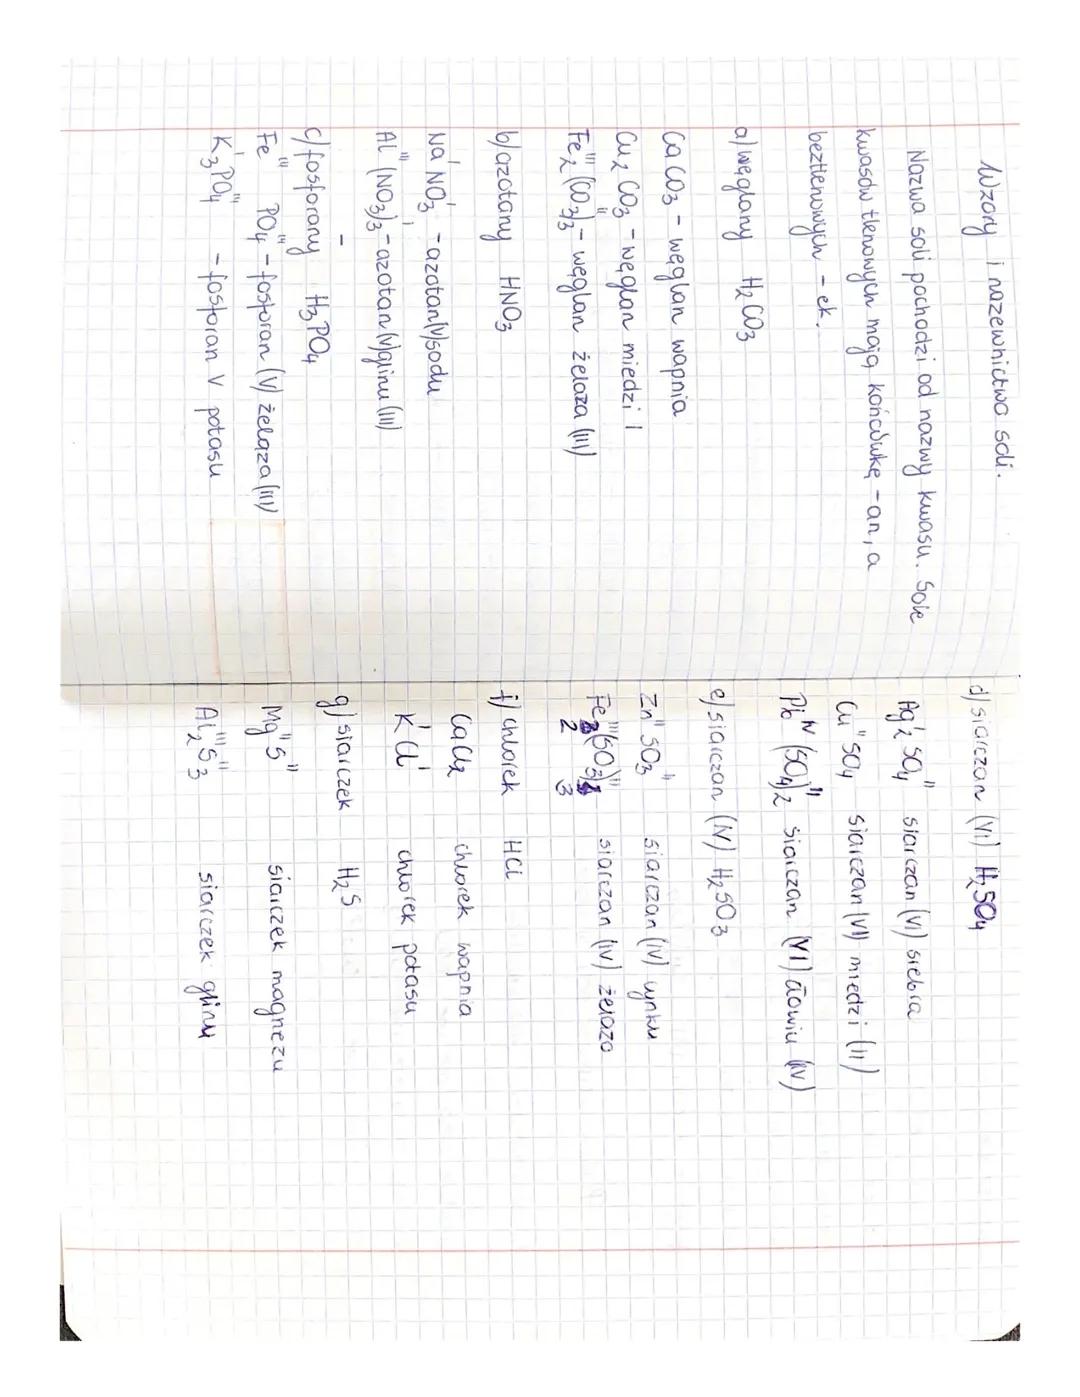 Wzory i nazewnictwo soli.
Nazwa soli pochodzi od nazwy kwasu. Sole
kwasów tlenowych mają końcówkę -an, a
beztlenowych -ek.
a) węglany H₂CO₃
CaCO₃ - węglan wapnia
Cu₂CO₃ - węglan miedzi I
Fe₂ᴵᴵᴵ(CO₃)₃ᴵᴵ - węglan żelaza (III)
b) azotany HNO₃
NaᴵNO₃ᴵ - azotan(V) sodu
Alᴵᴵᴵ(NO₃)₃ᴵ - azotan (V) glinu (III)
c) fosforany H₃PO₄
Feᴵᴵᴵ PO₄ᴵᴵᴵ - fosforan (V) żelaza (III)
K₃ᴵPO₄ᴵᴵᴵ - fosforan V potasu
d) siarczan (VI) H₂SO₄
Ag₂ᴵSO₄ᴵᴵ siarczan (VI) srebra
CuᴵᴵSO₄ siarczan (VI) miedzi (II)
Pbᴵⱽ(SO₄)₂ᴵᴵ siarczan (VI) ołowiu (IV)
e) siarczan (IV) H₂SO₃
ZnᴵᴵSO₃ᴵᴵ siarczan (IV) cynku
Fe₂ᴵᴵᴵ(SO₃)₃ᴵᴵ siarczan (IV) żelaza
2 3
f) chlorek HCl
CaCl₂ chlorek wapnia
KᴵClᴵ chlorek potasu
g) siarczek H₂S
MgᴵᴵSᴵᴵ siarczek magnezu
Al₂ᴵᴵᴵS₃ᴵᴵ siarczek glinu